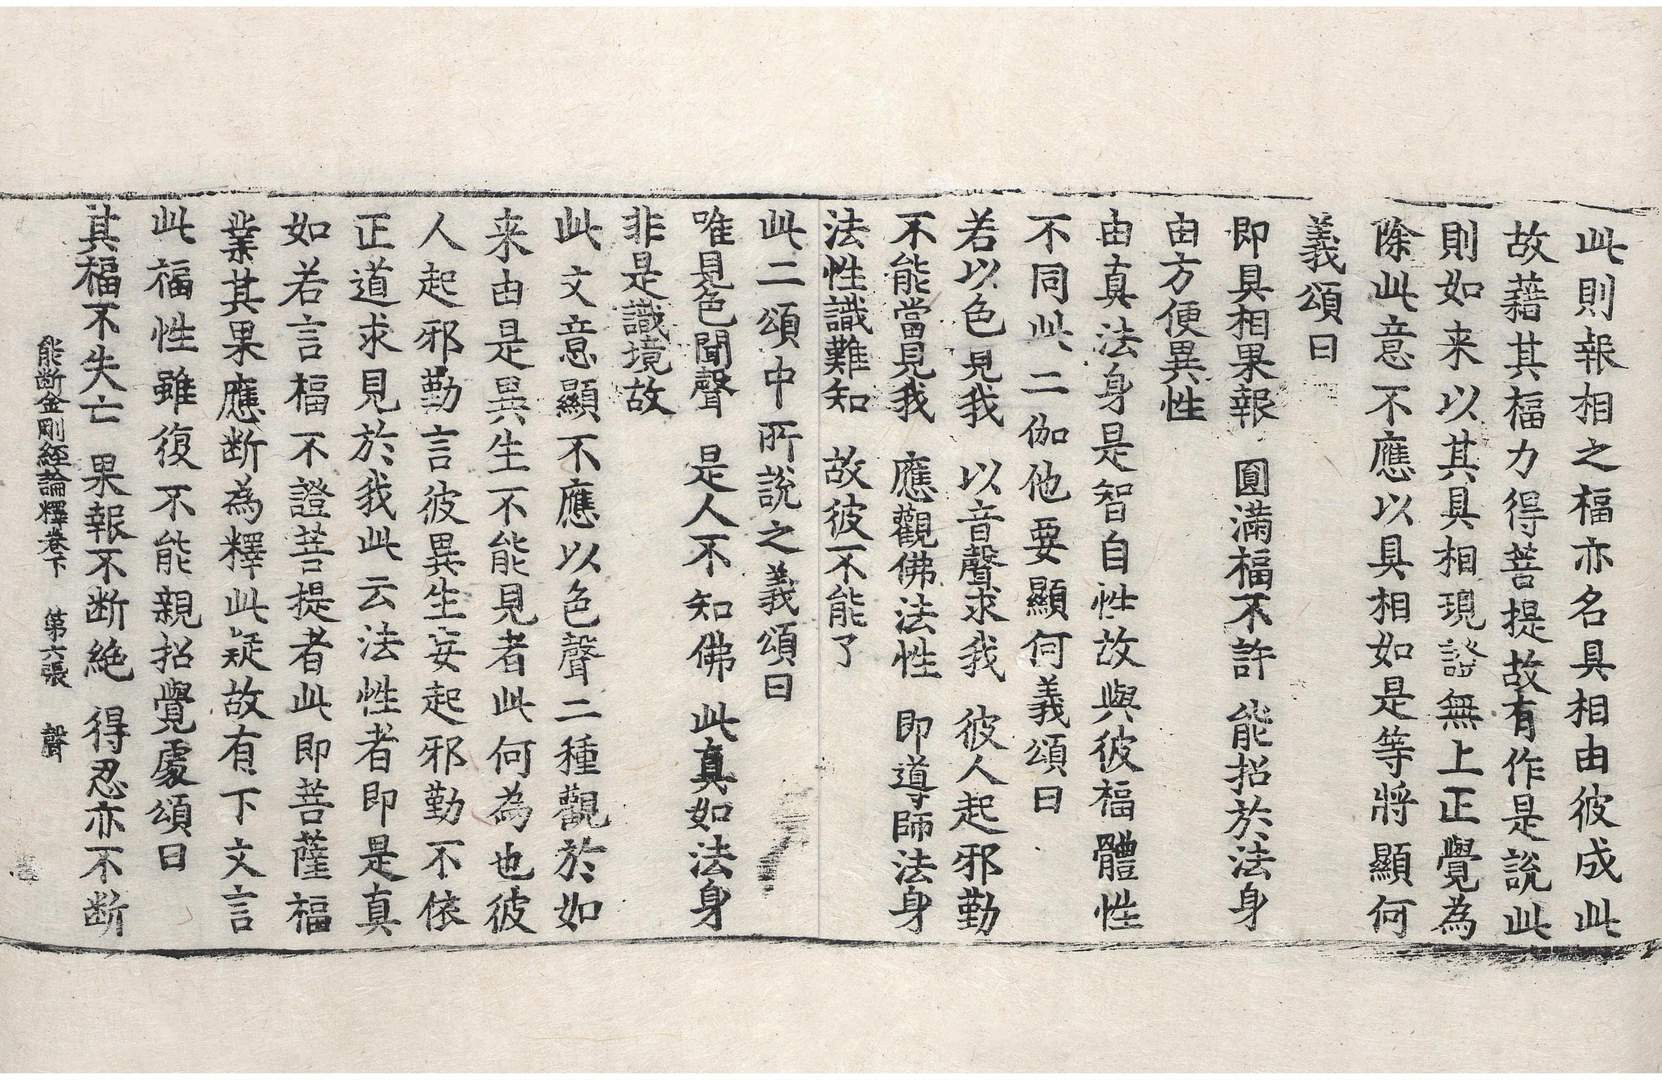 此則報相之福亦名具相由彼成此
故藉其福力得菩提故有作是說此
則如来以其具相現證無上正覺為
除此意不應以具相如是等將顯何
義頌曰
即具相果報　圓滿福不許　能招於法身
由方便異性
由真法身是智自性故與彼福體性
不同此二伽他要顯何義頌曰
若以色見我　以音聲求我　彼人起邪勤
不能當見我　應觀佛法性　即導師法身
法性識難知　故彼不能了
此二頌中所說之義頌曰
唯見色聞聲　是人不知佛　此真如法身
非是識境故
此文意顯不應以色聲二種觀於如
来由是異生不能見者此何為也彼
人起邪勤言彼異生妄起邪勤不依
正道求見於我此云法性者即是真
如若言福不證菩提者此即菩薩福
業其果應断為釋此疑故有下文言
此福性雖復不能親招覺處頌曰
其福不失亡　果報不断絶　得忍亦不断
能断金剛經論釋卷下　第六張　聲